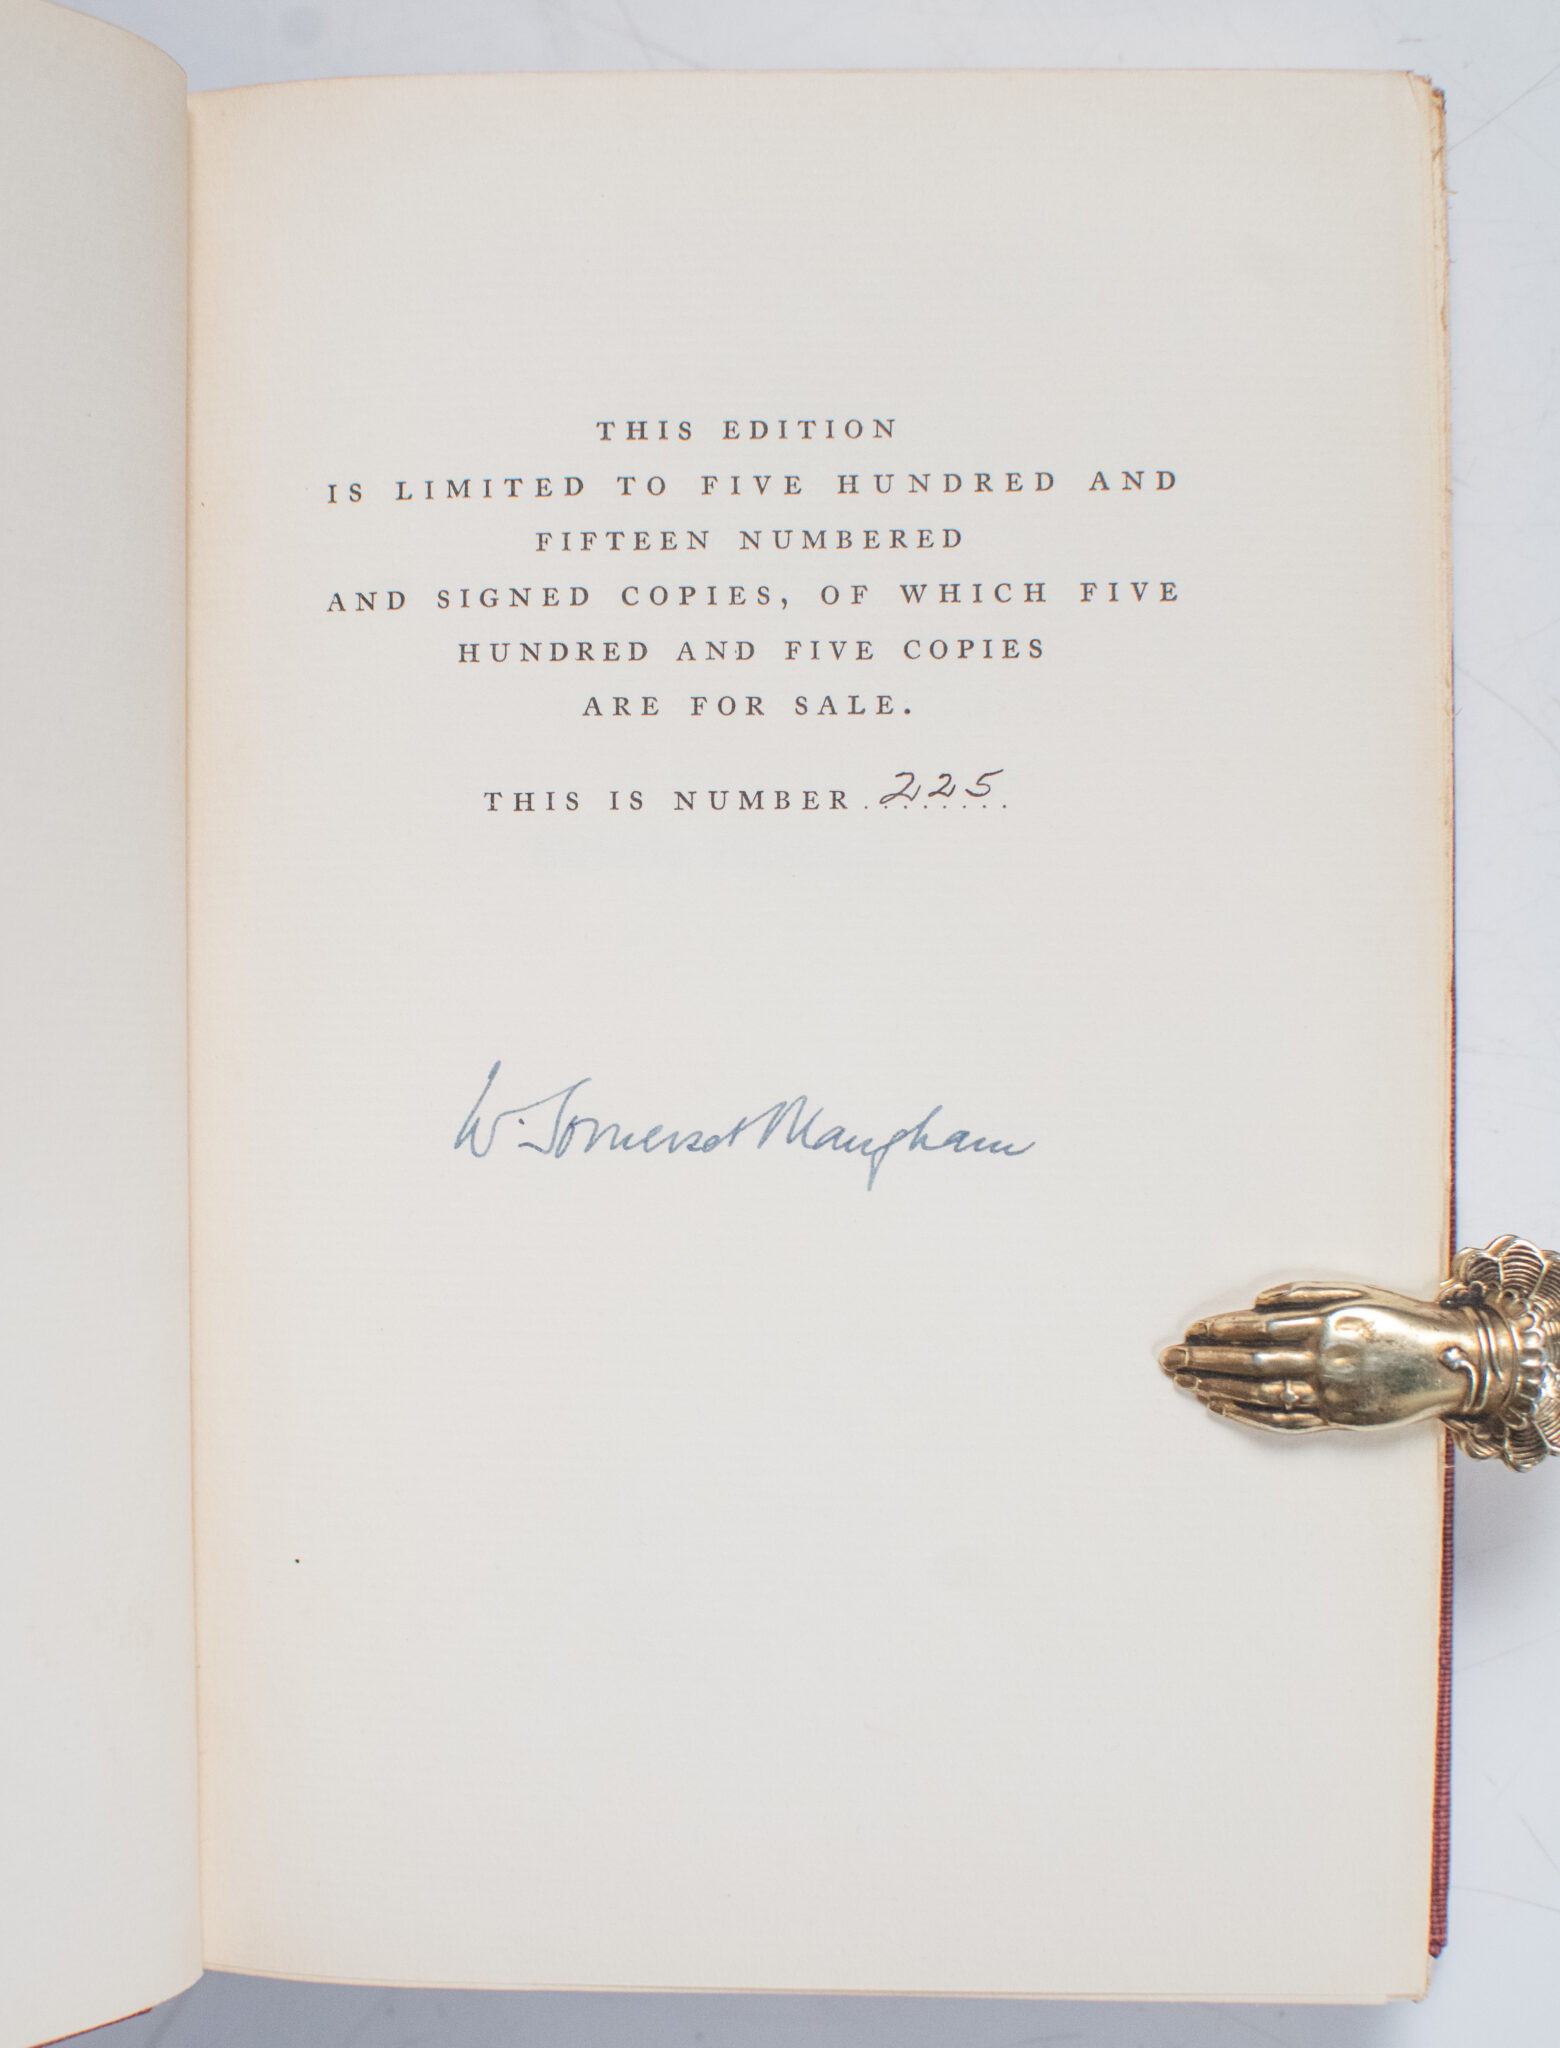 THIS EDITION
IS LIMITED TO FIVE HUNDRED AND
FIFTEEN NUMBERED
AND SIGNED COPIES, OF WHICH FIVE
HUNDRED AND FIVE COPIES
ARE FOR SALE.
THIS IS NUMBER 225
W. Somerset Maugham